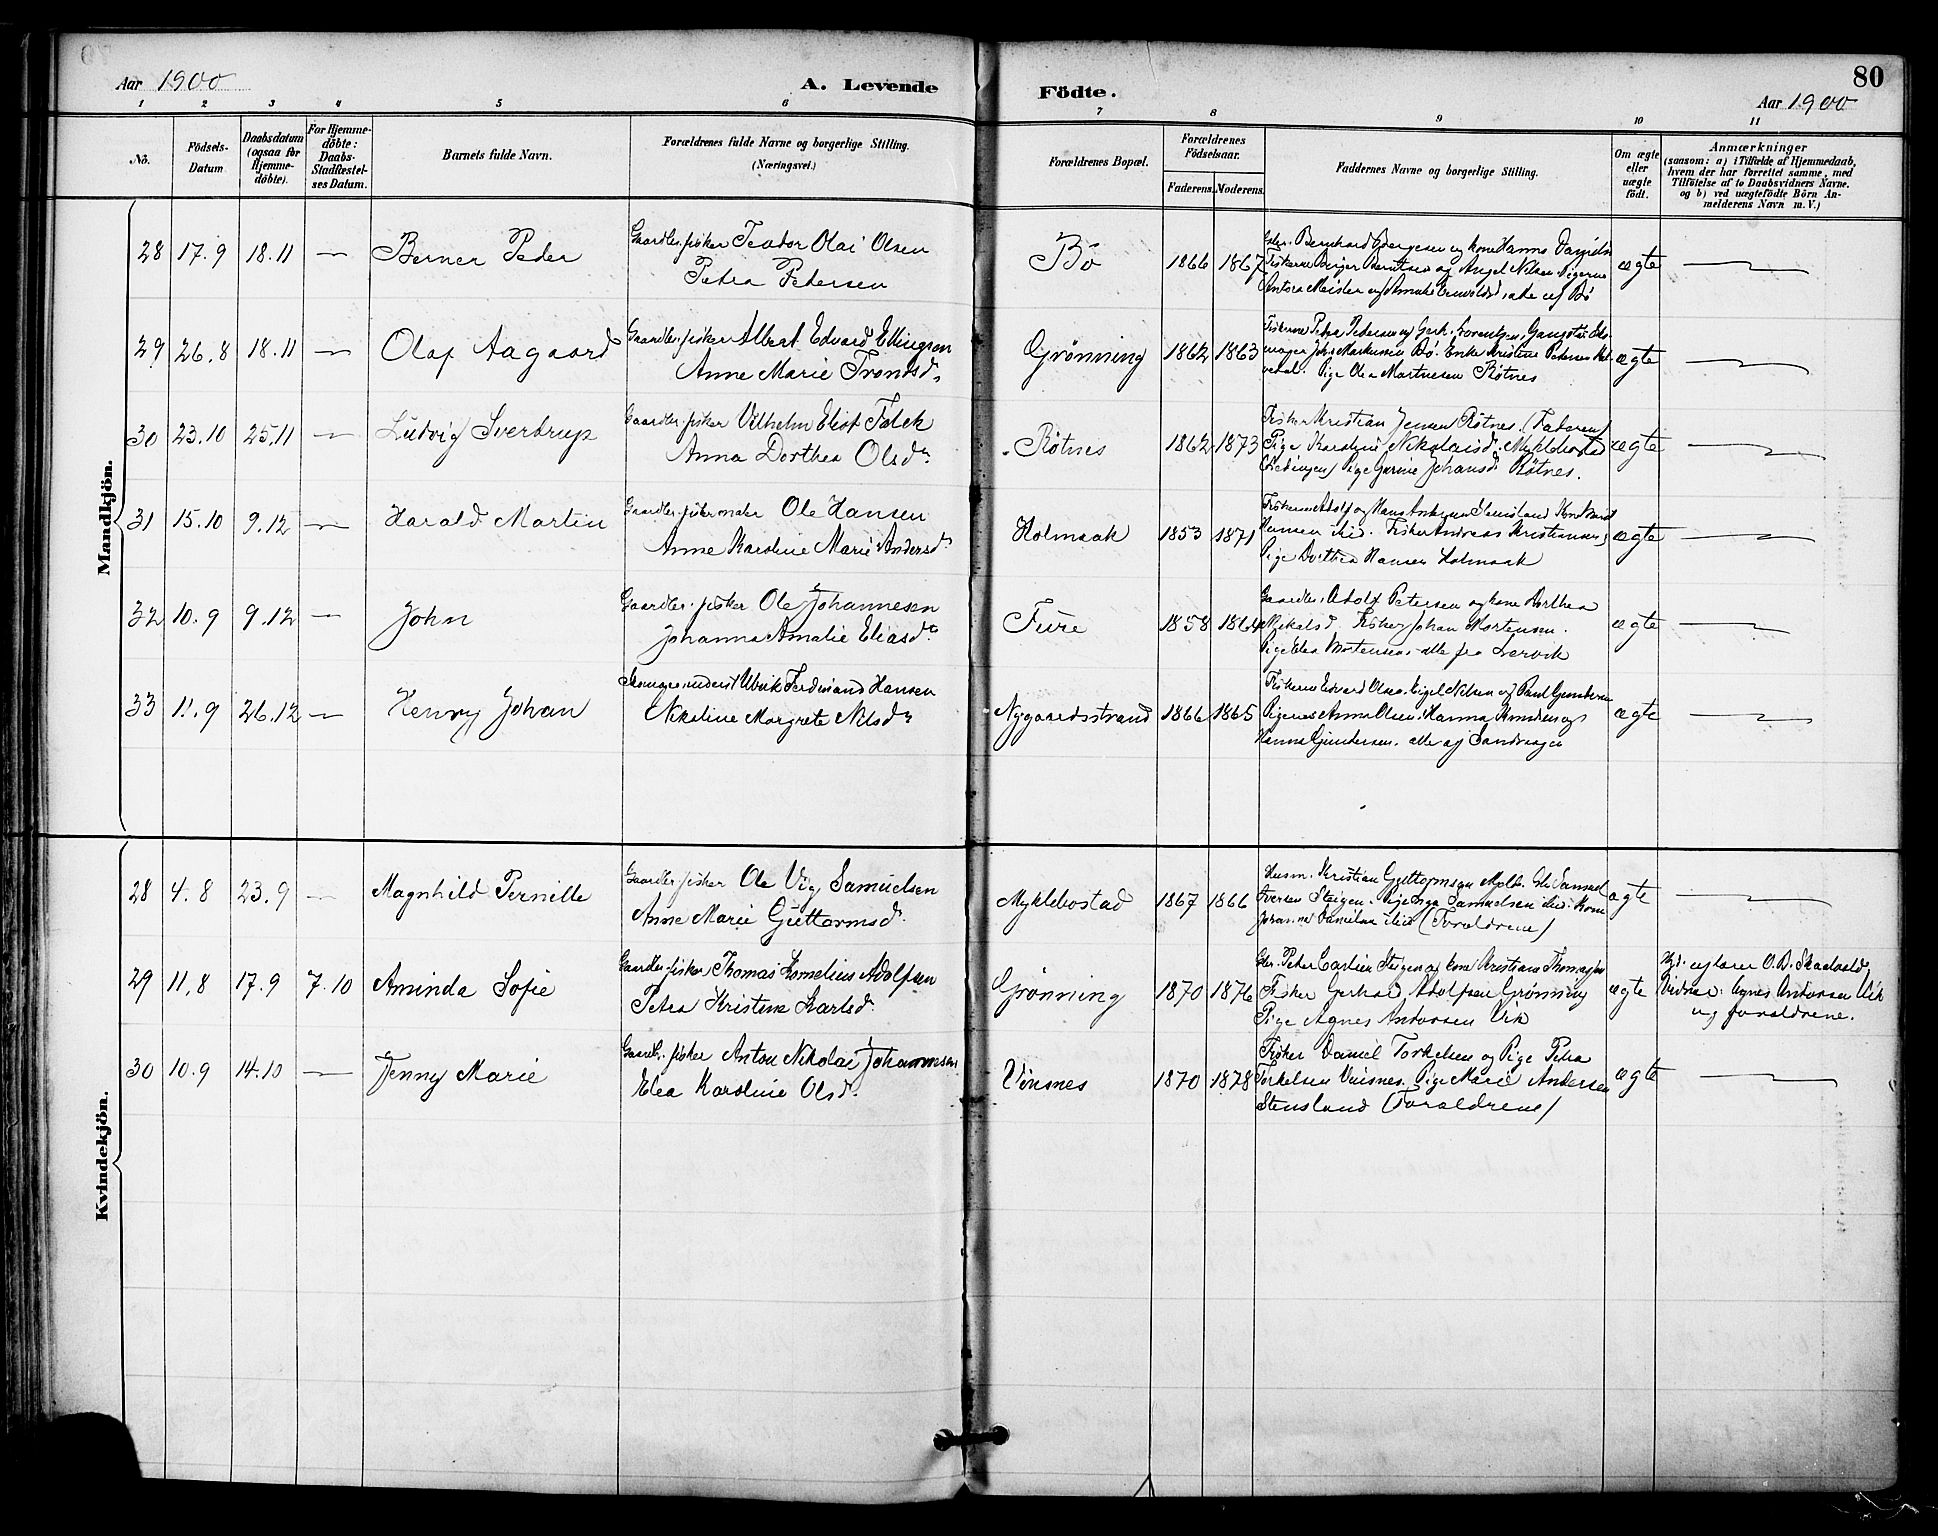 80
Aar 1900
A. Levende
Födte.
Aar 1900
1 2 3 4 5 6 7 8 9 10 11
No.
Födsels-Datum
Daabsdatum (ogsaa for Hjemmedöbte).
For Hjemmedöbte: Daabs-Stadfæstelses Datum.
Barnets fulde Navn.
Forældrenes fulde Navne og borgerlige Stilling. (Næringsvei.)
Forældrenes Bopæl.
Forældrenes Födselsaar.
Faderens. Moderens.
Faddernes Navne og borgerlige Stilling.
Om ægte eller uægte födt.
Anmærkninger
(saasom: a) i Tilfælde af Hjemmedaab,
hvem der har forrettet samme, med
Tilföielse af to Daabsvidners Navne.
og b) ved uægtefödte Börn An-
melderens Navn m. V.)
Mandkjön.
28 17.9 18.11 — Berner Peder
Gaardbr. fisker Teodor Olai Olsen
Petra Pedersen
Bö 1866 1867
ægte —
29 26.8 18.11 — Olaf Aagaard
Gaardbr. fisker Albert Edvard Ellingsen
Anne Marie Tronds.
Grønning 1862 1863
Pige Olea Martinesen Røtnes
ægte —
30 23.10 25.11 — Ludvig Sverdrup
Gaardbr. fisker Vilhelm Eliot Falck
Anna Dorthea Olsd.
Røtnes 1862 1873
Fisker Kristian Jensen Røtnes. (Faderen)
Pige Karoline Nikolaisd. Myklebostad
Pige Johansd. Røtnes.
ægte —
31 15.10 9.12 — Harald Martin
Gaardbr. Ole Hansen
Anne Karoline Marie Andersd.
Holmaak 1853 1871
Hansen ibid. Fisker Andreas Kristiansen,
Pige Dorthea Hansen Holmaak
ægte —
32 10.9 9.12 — John
Gaardbr. fisker Ole Johannesen
Johanna Amalie Eliasd.
Fure 1858 1864
Gaardbr. Adolf Petersen og kone Dorthea
Fisker Johan Mortensen.
Pige Elea Mortensen, alle fra Lervik
ægte —
33 11.9 26.12 — Henry Johan
Ulrik Ferdinand Hansen
Nikoline Margrete Nilsd.
Nygaardsstrand 1866 1865
Fiskerne Edvard Olsen, Eigel Nilsen og Paul Gundersen
Pigerne Anna Olsen, Hanna og
Hanna Gundersen. alle af Sandvaagen
ægte —
Kvindekjön.
28 4.8 23.9 — Magnhild Pernille
Gaardbr. fisker Ole Vig Samuelsen
Anne Marie Guttormsd.
Myklebostad 1867 1866
Husm. Kristian Guttormsen
Steigen. Pige Samuelsen ibid. Kone
Danielsen ibid (Forældrene)
ægte —
29 11.8 17.9 7.10 Aminda Sofie
Gaardbr. fisker Thomas Kornelius Adolfsen
Petra Kristine Karlsd.
Grønning 1870 1876
Fisker Gerhard Adolfsen Grønning
Pige Agnes Antonsen Vik
ægte
Vidner: Agnes Antonsen Vik
og forældrene.
30 10.9 14.10 — Jenny Marie
Gaardbr. fisker Anton Nikolai Johannesen
Elea Karoline Olsd.
Vinsnes 1870 1878
Fisker Daniel Torkelsen og Pige Petra
Torkelsen Vinsnes. Pige Marie Andersen
Stensland (Forældrene)
ægte —